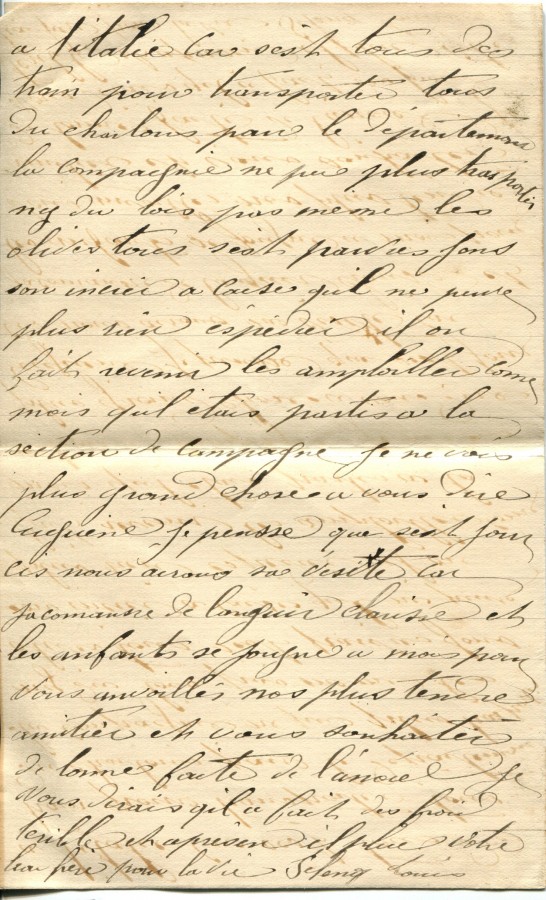 a l'italie car sest tous des
train pour transporter tous
du charbons pour le département
la compagnie ne peu plus trasporter
ny du bois pas meme les
olives tous sest pauvres gens
son incier a cause qu'il ne peuve
plus rien espedier il on
fait revenir les amploiller come
mois qu'il etais partis a la
section de campagne Je ne vois
plus grand chose a vous dire
Euguene Je pensse que sest jour
cis nous aurons sa visitte car
Ja comansse de languir claisse et
les anfants se jougne a mois pour
vous anvoiller nos plus tendre
amitier et vous souhaiter
de bonne faite de l'anné Je
vous dirais qil a fait des froid
terible et apresen il pleu votre
bau frère pour la vie Louis